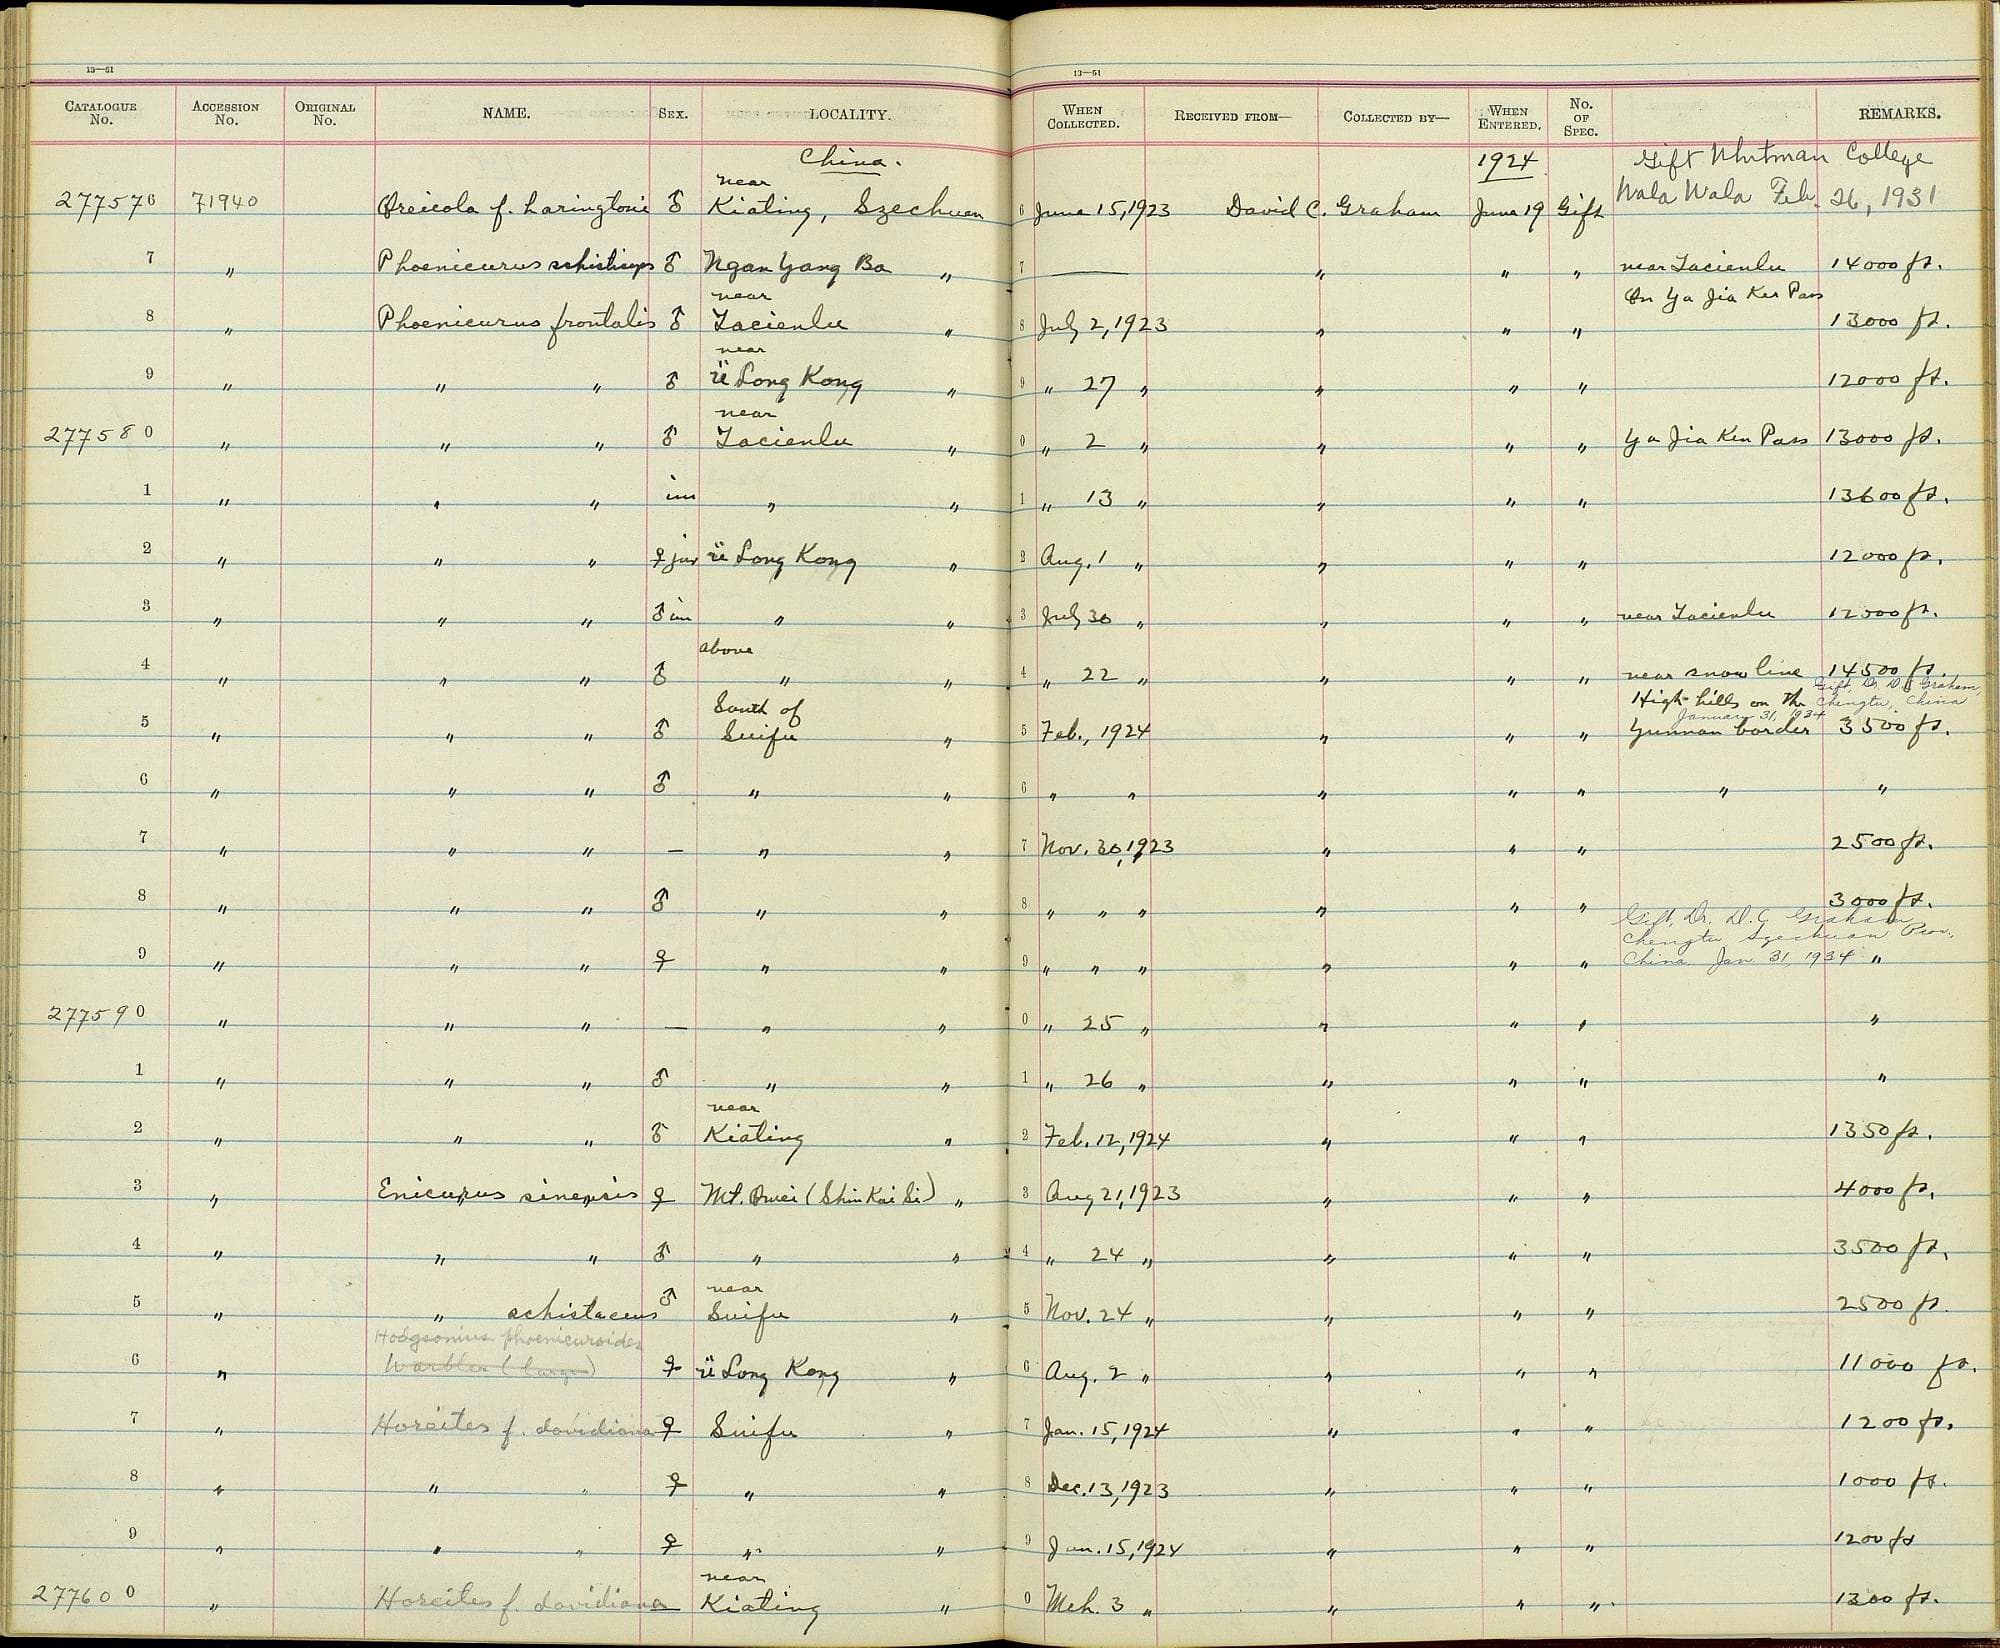 13—51
13—51
CATALOGUE No. ACCESSION No. ORIGINAL No. NAME. SEX. LOCALITY. WHEN COLLECTED. RECEIVED FROM— COLLECTED BY— WHEN ENTERED. No. OF SPEC. REMARKS.
China. 1924 Gift Whitman College
near
277576 71940 Oreicola f. haringtoni ♂ Kiating, Szechuen 6 June 15, 1923 David C. Graham June 19 Gift Wala Wala Feb. 26, 1931
7 " Phoenicurus schisticeps ♂ Ngan Yang Ba " 7 — " " " near Tacienlu 14000 ft.
near On Ya Jia Ken Pass
8 " Phoenicurus frontalis ♂ Tacienlu " 8 July 2, 1923 " " " 13000 ft.
near
9 " " " ♂ ü Long Kong " 9 " 27 " " " " 12000 ft.
near
277580 " " " ♂ Tacienlu " 0 " 2 " " " " Ya Jia Ken Pass 13000 ft.
1 " " " im " " 1 " 13 " " " " 13600 ft.
2 " " " ♀ juv ü Long Kong " 2 Aug. 1 " " " " 12000 ft.
3 " " " ♂ im " " 3 July 30 " " " " near Tacienlu 12000 ft.
above
4 " " " ♂ " " 4 " 22 " " " " near snow line 14500 ft.
Gift, Dr. D. C. Graham,
South of High hills on the Chengtu, China
January 31, 1934
5 " " " ♂ Suifu " 5 Feb., 1924 " " " Yunnan border 3500 ft.
6 " " " ♂ " " 6 " " " " " " "
7 " " " — " " 7 Nov. 30, 1923 " " " 2500 ft.
8 " " " ♂ " " 8 " " " " " " 3000 ft.
Gift, Dr. D. C. Graham
Chengtu Szechuan Prov.,
9 " " " ♀ " " 9 " " " " " " China Jan. 31, 1934 "
277590 " " " — " " 0 " 25 " " " " "
1 " " " ♂ " " 1 " 26 " " " " "
near
2 " " " ♂ Kiating " 2 Feb. 12, 1924 " " " 1350 ft.
3 " Enicurus sinensis ♀ Mt. Omei (Shin Kai Si) " 3 Aug 21, 1923 " " " 4000 ft.
4 " " " ♂ " " 4 " 24 " " " " 3500 ft.
near
5 " " schistaceus ♂ Suifu " 5 Nov. 24 " " " " 2500 ft.
Hodgsonius phoenicuroides
6 " Warbler (large) ♀ ü Long Kong " 6 Aug. 2 " " " " 11000 ft.
7 " Horeites f. davidiana ♀ Suifu " 7 Jan. 15, 1924 " " " 1200 ft.
8 " " " ♀ " " 8 Dec. 13, 1923 " " " 1000 ft.
9 " " " ♀ " " 9 Jan. 15, 1924 " " " 1200 ft
near
277600 " Horeites f. davidiana — Kiating " 0 Mch. 3 " " " " 1300 ft.